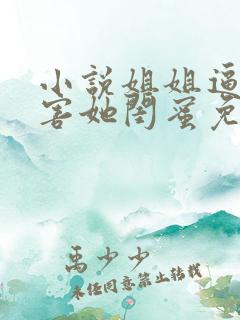 小説姐姐逼
害她閨蜜免
禹少少
未任同意禁止转载